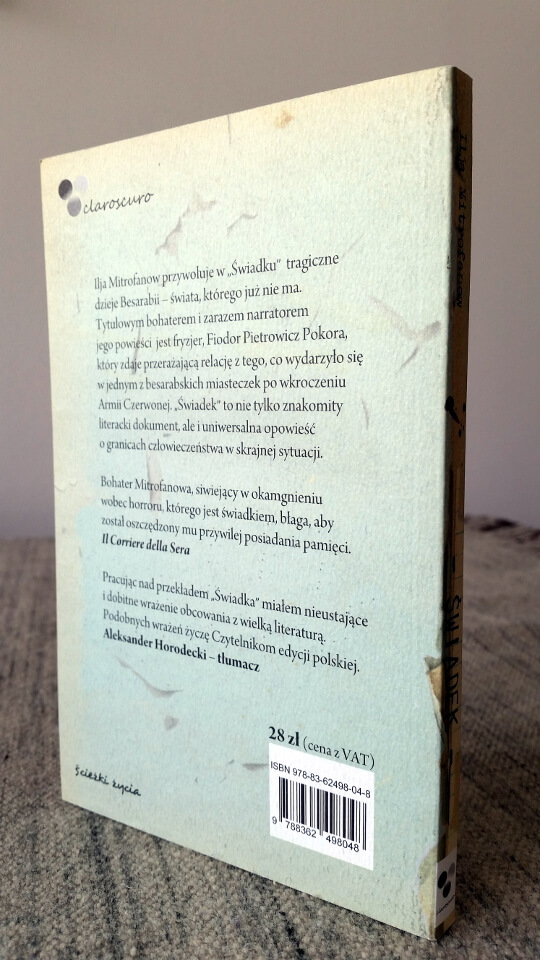 claroscuro
Ilja Mitrofanow przywołuje w „Świadku” tragiczne
dzieje Besarabii – świata, którego już nie ma.
Tytułowym bohaterem i zarazem narratorem
jego powieści jest fryzjer, Fiodor Pietrowicz Pokora,
który zdaje przerażającą relację z tego, co wydarzyło się
w jednym z besarabskich miasteczek po wkroczeniu
Armii Czerwonej. „Świadek” to nie tylko znakomity
literacki dokument, ale i uniwersalna opowieść
o granicach człowieczeństwa w skrajnej sytuacji.
Bohater Mitrofanowa, siwiejący w okamgnieniu
wobec horroru, którego jest świadkiem, błaga, aby
został oszczędzony mu przywilej posiadania pamięci.
Il Corriere della Sera
Pracując nad przekładem „Świadka” miałem nieustające
i dobitne wrażenie obcowania z wielką literaturą.
Podobnych wrażeń życzę Czytelnikom edycji polskiej.
Aleksander Horodecki – tłumacz
28 zł (cena z VAT)
ISBN 978-83-62498-04-8
9 788362 498048
ścieżki życia
Ilja Mitrofanow
ŚWIADEK